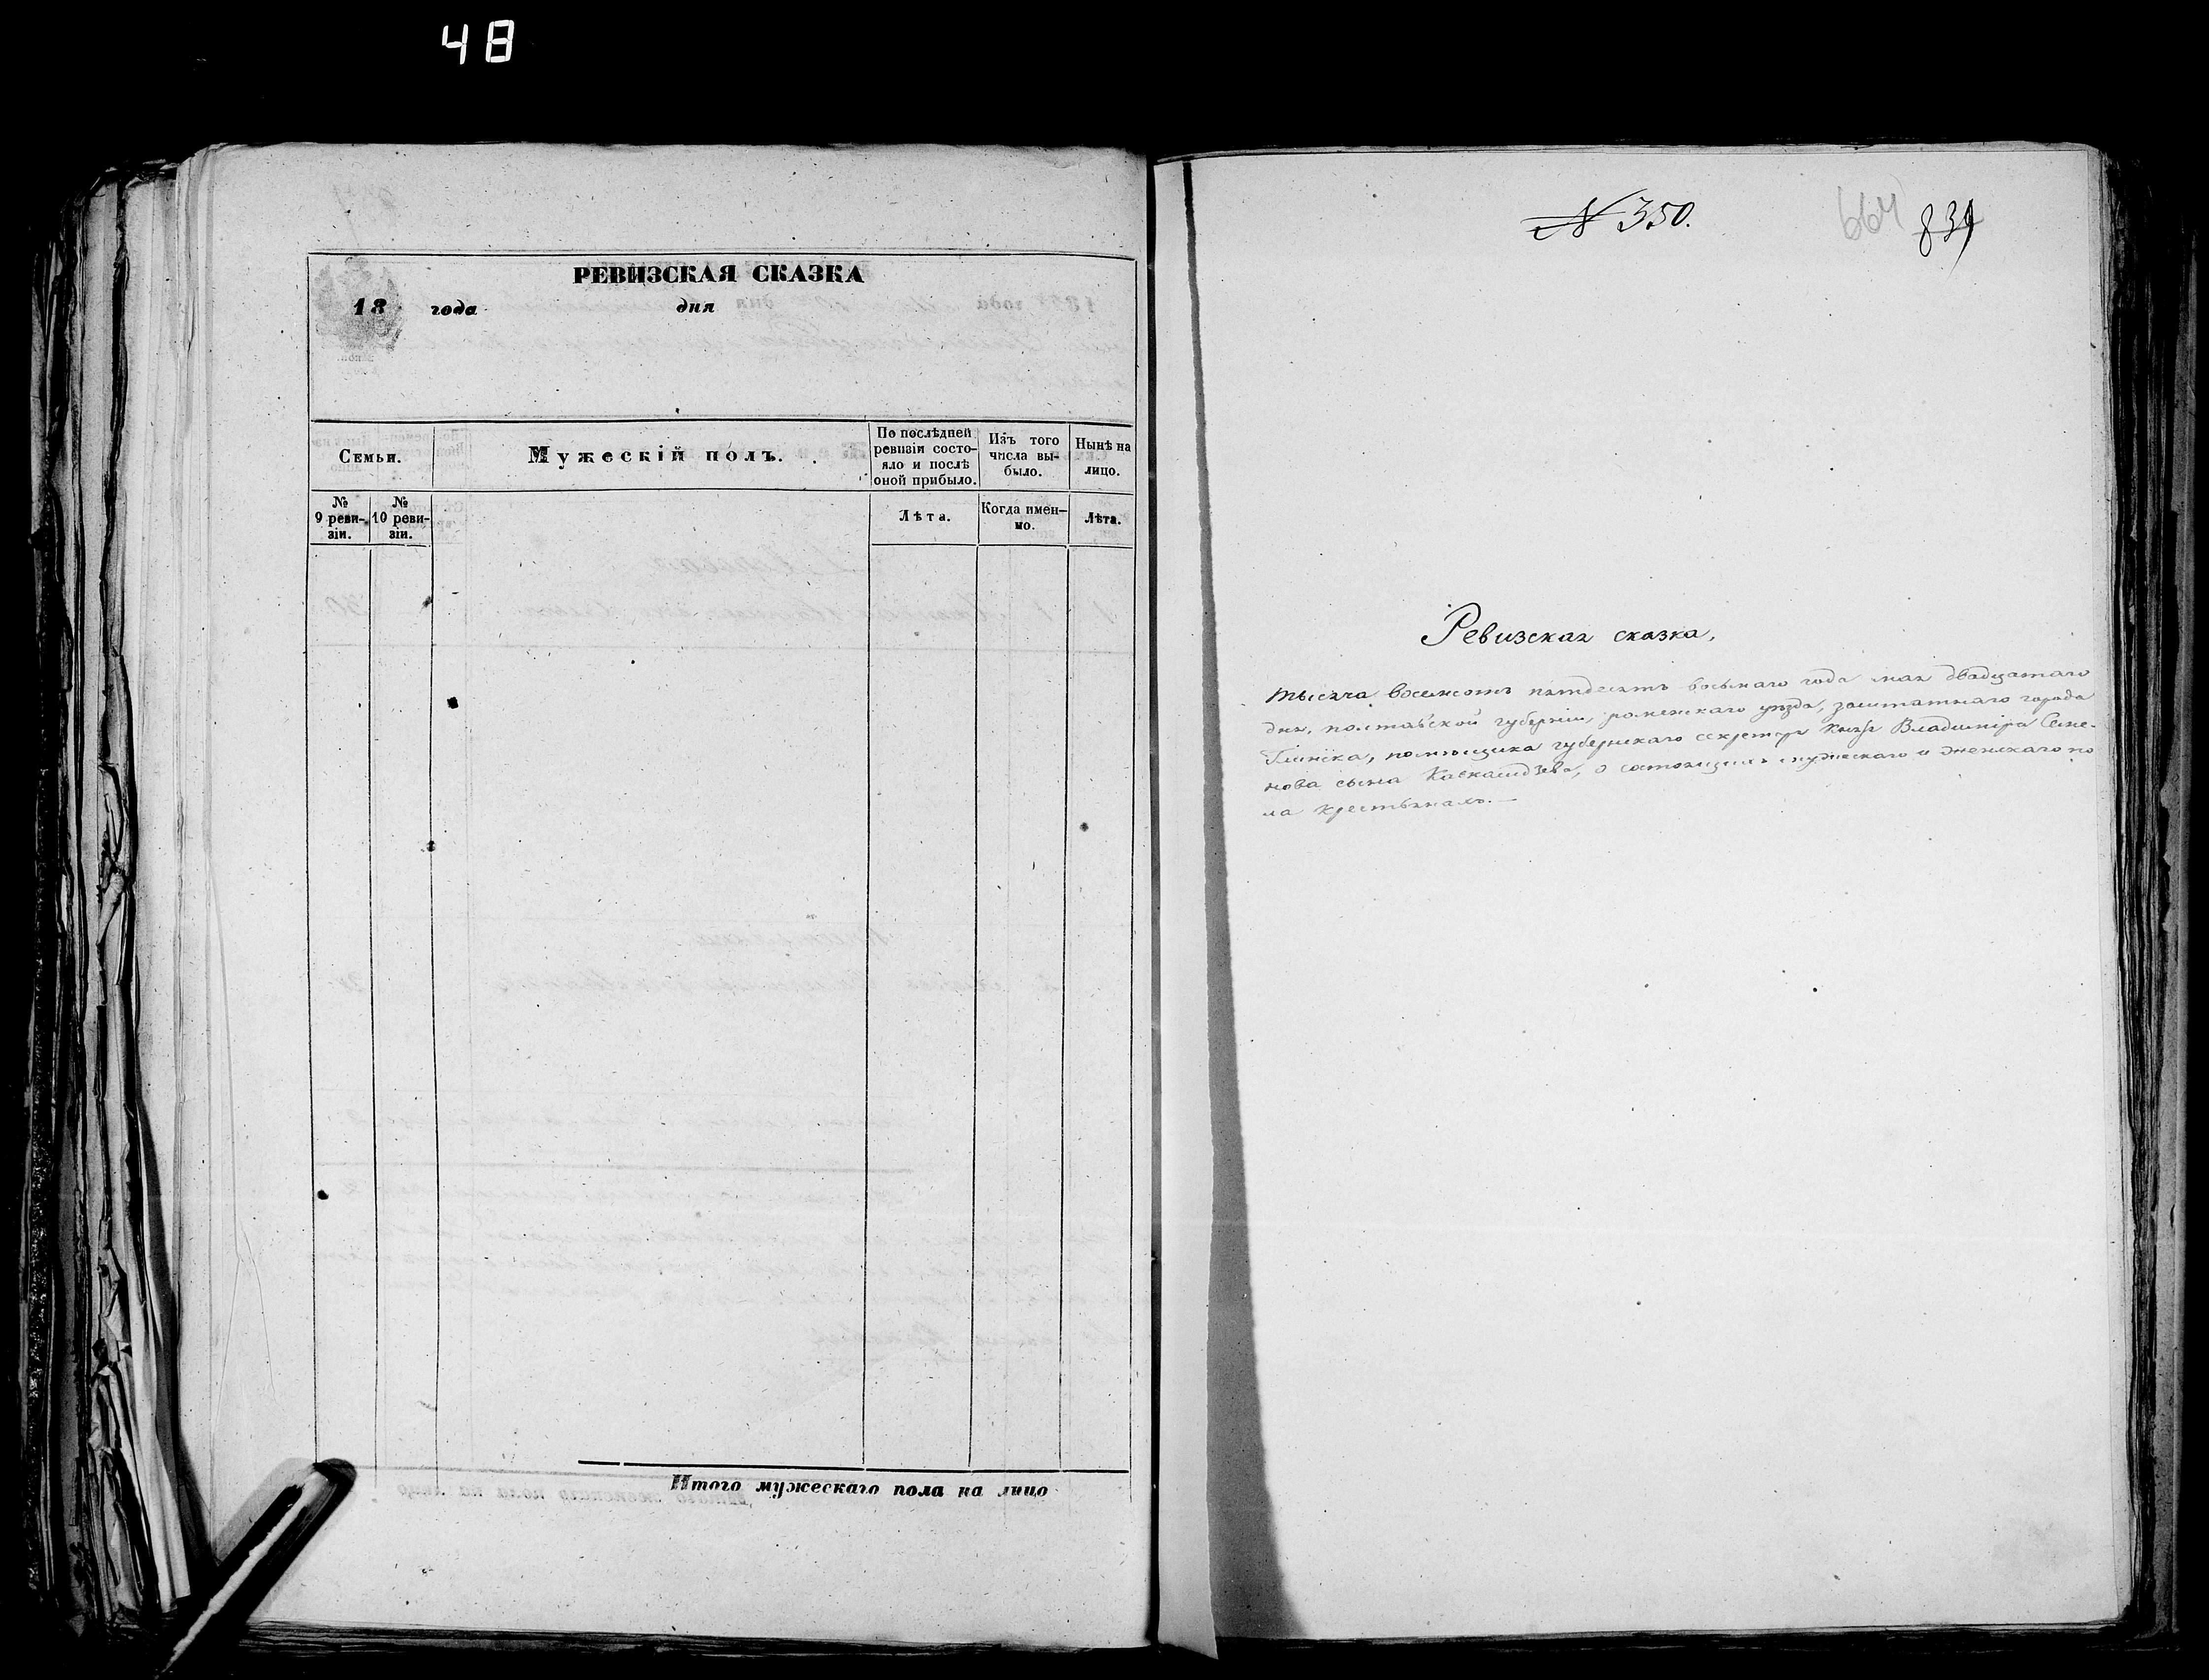 48
РЕВИЗСКАЯ СКАЗКА
18 года дня
Семьи.
Мужескій полъ.
По послѣдней ревизіи состояло и послѣ оной прибыло.
Изъ того числа выбыло.
Нынѣ на лицо.
№ 9 ревизіи.
№ 10 ревизіи.
Лѣта.
Когда именно.
Лѣта.
Итого мужескаго пола на лицо
№ 350.
664
839
Ревизская сказка,
тысяча восемсотъ пятдесятъ восьмаго года мая двадцатаго
дня, полтавской губерніи, роменскаго уѣзда, заштатнаго города
Глинска, помѣщика губернскаго секретаря Князя Владиміра Семе-
нова сына Кавкасидзева, о состоящихъ мужескаго и женскаго по
ла крестьянахъ.—